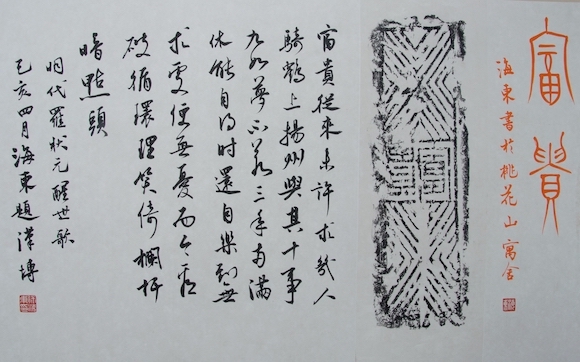 富貴
海東書於桃花山寓舍
富貴從來未許求幾人
騎鶴上揚州與其十事
九如夢不若三平兩滿
休能自得時還自樂到無
求處便無憂而今看
破循環理笑倚欄杆
暗點頭
明代羅狀元醒世歌
己亥四月海東題漢塼